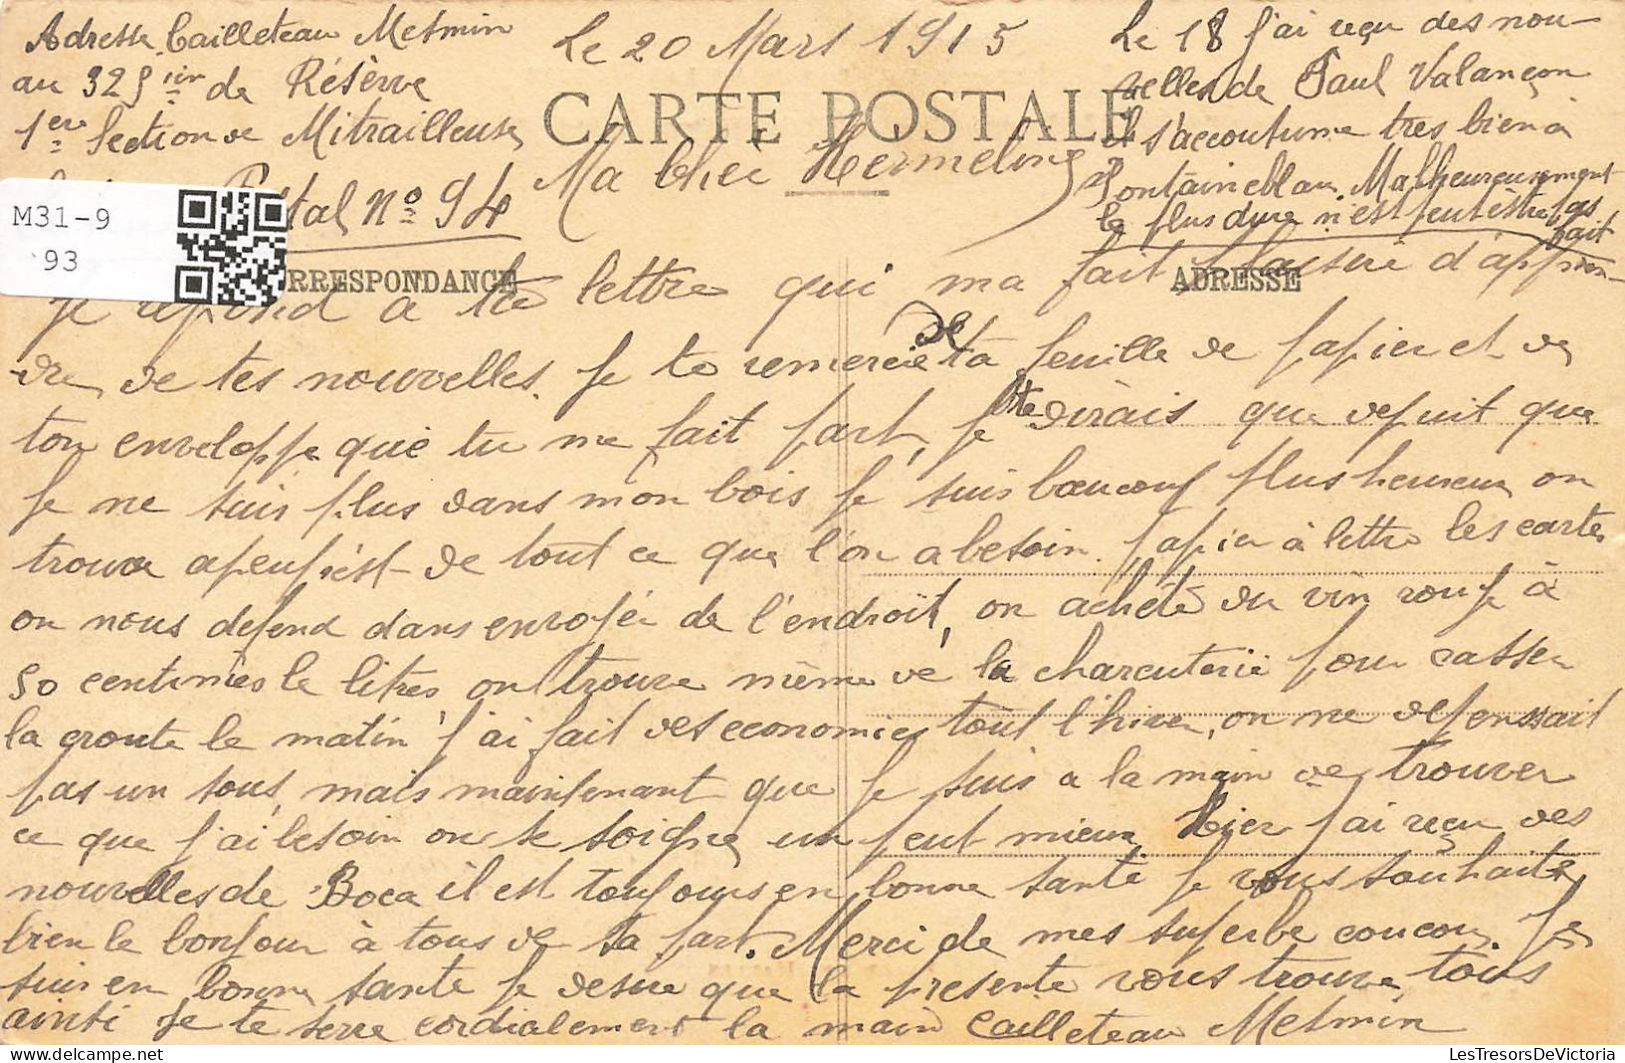 Adresse Cailleteau Mesmin
au 325ièm de Réserve
1ère Section de Mitrailleuse
Postal n° 94
Le 20 Mars 1915
Le 18 j'ai reçu des nou-
velles de Paul Valançon
il s'accoutume tres bien à
Fontainebleau Malheureusement
le plus dure n'est peut être pas
fait
CARTE POSTALE
Ma Chèr Hermeline
M31-9
93
CORRESPONDANCE
ADRESSE
Je repond a ta lettre qui ma fait plaisire d'appren-
dre de tes nouvelles. Je te remercie de ta feuille de papier et de
ton enveloppe que tu me fait part, je te dirais que depuit que
je ne suis plus dans mon bois je suis baucoup plus heureux on
trouve apeuprést de tout ce que l'on a besoin. papier à lettre les cartes
on nous defend dans envoyér de l'endroit, on achète du vin rouge à
50 centimes le litres, on trouve même de la charcuterie pour casser
la croute le matin j'ai fait des economies tout l'hiver, on ne depenssait
pas un sous, mais maintenant que je suis a la main de trouver
ce que j'ai besoin on se soigne un peut mieux Hier j'ai reçu des
nouvelles de Boca il est toujours en bonne santé je vous souhaite
bien le bonjour à tous de ta part. Merci de mes superbe coucou. Je
suis en bonne sante je desire que la presente vous trouve, tous
ainsi je te serre cordialement la main Cailleteau Mesmin
LesTresorsDeVictoria